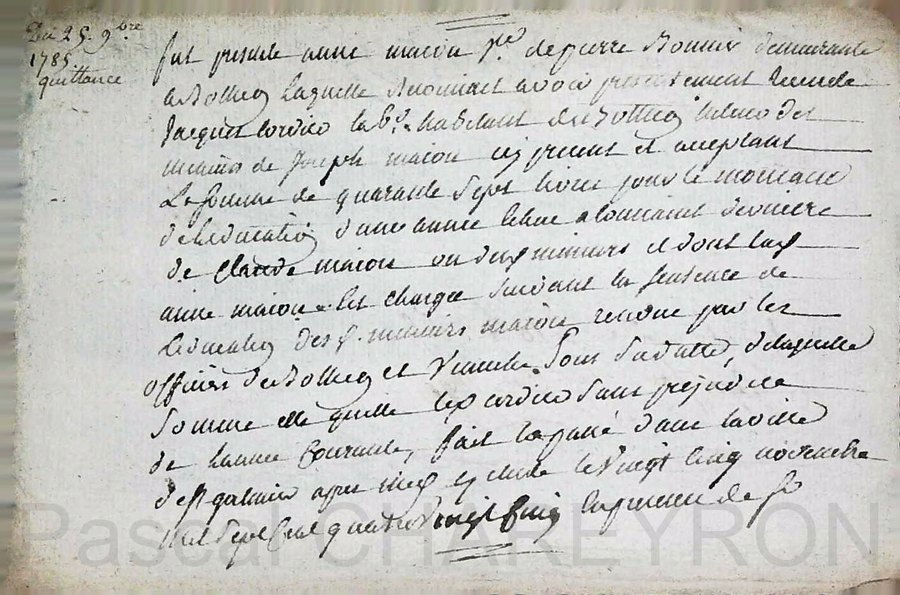 Du 25. 9bre
1785
quittance
fut presente anne macon fe. de pierre Bonnier demeurante
a Botheon laquelle reconnait avoir presentement recu de
Jacques Cordier lab.r habitant de Bothéon tuteur des
mineurs de Joseph macon icy present et acceptant
La somme de quarante sept livres pour le montant
de l'education d'une année echue a la toussaint derniere
de Claude macon un des mineurs et dont lad.
anne macon est chargée suivant la sentence de
l'education des d. mineurs macon rendue par les
officiers de Bothéon et Veauche sous sa datte, de laquelle
Somme elle quitte led. cordier sans prejudice
de l'année Courante, fait et passé dans la ville
de St galmier apres midy en etude le Vingt Cinq novembre
Mil Sept Cent quatre Vingt Cinq en presence de Sr
Pascal CHAREYRON